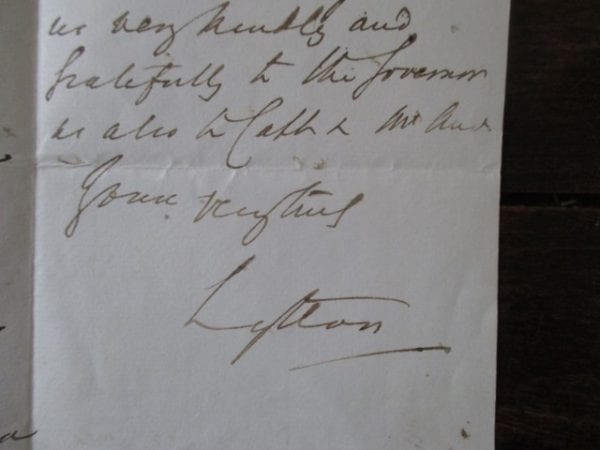 us very kindly and
gratefully to the Governor
as also to
Yours very truly
Lytton